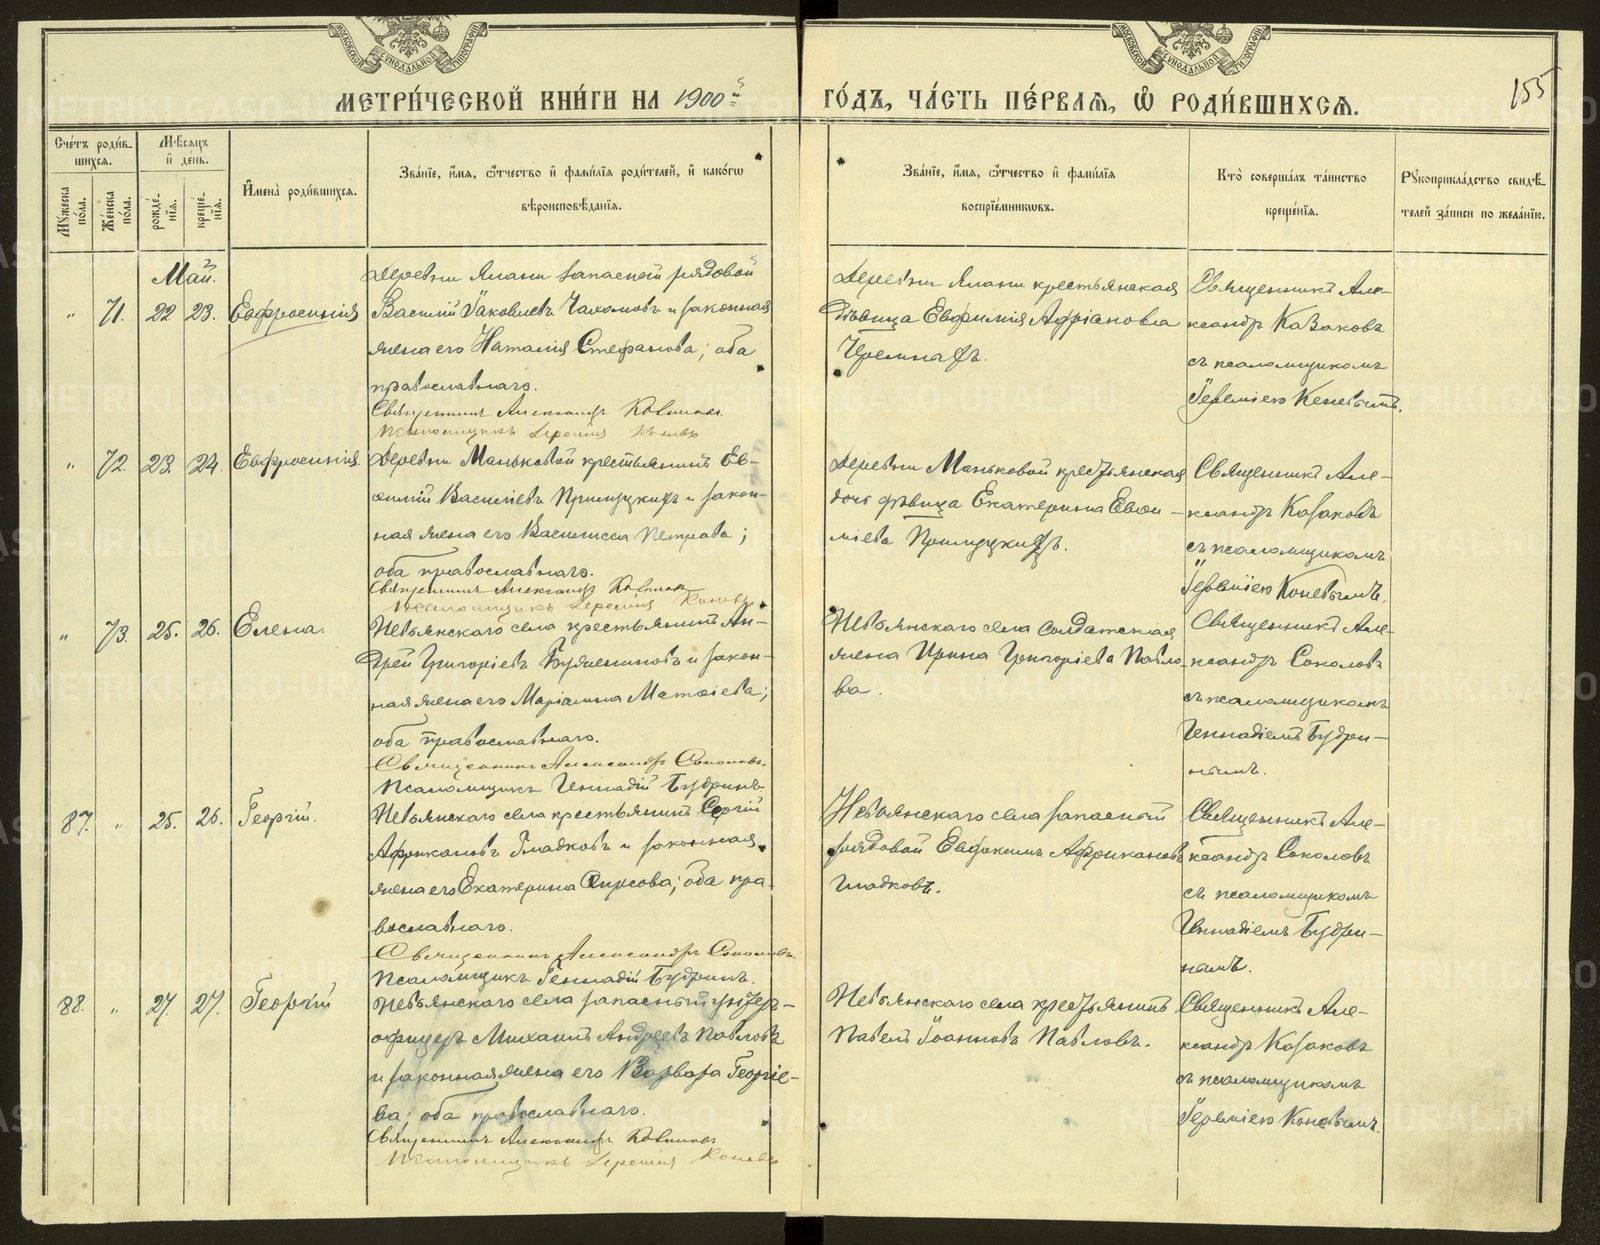 МОСКОВСКОЙ СУНОДАЛЬНОЙ ТИПОГРАФІИ
МОСКОВСКОЙ СУНОДАЛЬНОЙ ТИПОГРАФІИ
МЕТРИ́ЧЕСКОЙ КНИ́ГИ НА 1900й ГО́ДЪ, ЧА́СТЬ ПЕ́РВАѦ, Ѽ РОДИ́ВШИХСѦ.
155
Сче́тъ роди́в-
шихся.
Мѣ́сяцъ
и́ де́нь.
И҆мена̀ роди́вшихся.
Зва́нїе, и҆́мя, ѻ҆́тчество и҆ фами́лїя роди́телей, и҆ како́гѡ
вѣроисповѣ́данїя.
Зва́нїе, и҆́мя, ѻ҆́тчество и҆ фами́лїя
воспрїе́мниковъ.
Кто̀ соверша́лъ та́инство
креще́нїя.
Рꙋкоприкла́дство свидѣ́-
телей за́писи по жела́нїю.
Мꙋ́жеска по́ла.
Же́нска по́ла.
рожде́-
нїя.
креще́-
нїя.
Май.
" 71. 22 23. Евфросинія
Деревни Ялани запасной рядовой
Василій Іаковлевъ Чахомовъ и законная
жена его Наталія Стефанова; оба
православнаго.
Священникъ Александръ Казаковъ
Псаломщикъ Іеремія Коневъ
Деревни Ялани крестьянская
дѣвица Евфимія Адріанова
Священникъ Але-
ксандръ Казаковъ
съ псаломщикомъ
Іереміею Коневымъ.
" 72. 23. 24. Евфросинія.
Деревни Маньковой крестьянинъ Ев-
ѳимій Василіевъ и закон-
ная жена его Василисса Петрова;
оба православнаго.
Священникъ Александръ Казаковъ
Псаломщикъ Іеремія Коневъ
Деревни Маньковой крестьянская
дочь дѣвица Екатерина Евѳи-
міева
Священникъ Але-
ксандръ Казаковъ
съ псаломщикомъ
Іереміею Коневымъ.
" 73. 25. 26. Елена.
Невьянскаго села крестьянинъ Ан-
дрей Григоріевъ и закон-
ная жена его Маріамна Матѳіева;
оба православнаго.
Священникъ Александръ Соколовъ.
Псаломщикъ Геннадій Будринъ.
Невьянскаго села солдатская
жена Ирина Григоріева Павло-
ва.
Священникъ Але-
ксандръ Соколовъ
съ псаломщикомъ
Геннадіемъ Будри-
нымъ.
87. " 25. 26. Георгій.
Невьянскаго села крестьянинъ Сергій
Африкановъ Гладковъ и законная
жена его Екатерина Фирсова; оба пра-
вославнаго.
Священникъ Александръ Соколовъ.
Псаломщикъ Геннадій Будринъ.
Невьянскаго села запасной
рядовой Евдокимъ Африкановъ
Гладковъ.
Священникъ Але-
ксандръ Соколовъ
съ псаломщикомъ
Геннадіемъ Будри-
нымъ.
88. " 27. 27. Георгій
Невьянскаго села запасный унтеръ-
офицеръ Михаилъ Андреевъ Павловъ
и законная жена его Варвара Георгіе-
ва; оба православнаго.
Священникъ Александръ Казаковъ
Псаломщикъ Іеремія Коневъ
Невьянскаго села крестьянинъ
Павелъ Іоанновъ Павловъ.
Священникъ Але-
ксандръ Казаковъ
съ псаломщикомъ
Іереміею Коневымъ.